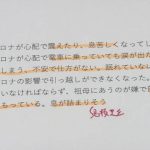 ロナが心配で震えたり、息苦しくなってし
ロナが心配で電車に乗っていても涙が出た
しまう、不安で仕方がない。眠れていない
ロナの影響で引っ越しができなくなった。
いなければならず、祖母にあうのが嫌で部
もっている。息が詰まりそう